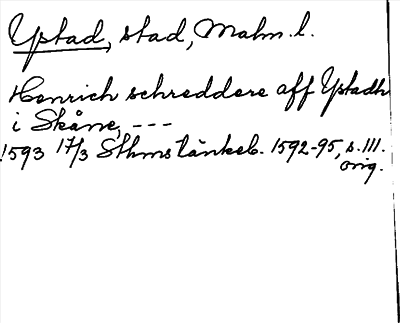 Ystad, stad, Malm. l.
Henrich schreddere aff Ystadh
i Skåne, ---
1593 17/3 Sthms tänkeb. 1592-95, s. 111.
orig.